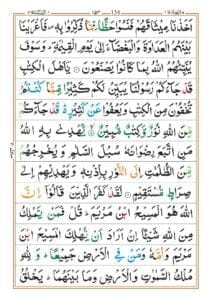 اَخَذْنَا مِيْثَاقَهُمْ فَنَسُوْا حَظًّا مِّمَّا ذُكِّرُوْا بِهٖ فَاَغْرَيْنَا
بَيْنَهُمُ الْعَدَاوَةَ وَالْبَغْضَآءَ اِلٰى يَوْمِ الْقِيٰمَةِ وَسَوْفَ
يُنَبِّئُهُمُ اللّٰهُ بِمَا كَانُوْا يَصْنَعُوْنَ يٰۤاَهْلَ الْكِتٰبِ
قَدْ جَآءَكُمْ رَسُوْلُنَا يُبَيِّنُ لَكُمْ كَثِيْرًا مِّمَّا كُنْتُمْ
تُخْفُوْنَ مِنَ الْكِتٰبِ وَيَعْفُوْا عَنْ كَثِيْرٍ قَدْ جَآءَكُمْ
مِّنَ اللّٰهِ نُوْرٌ وَّكِتٰبٌ مُّبِيْنٌ يَّهْدِيْ بِهِ اللّٰهُ
مَنِ اتَّبَعَ رِضْوَانَهٗ سُبُلَ السَّلٰمِ وَيُخْرِجُهُمْ
مِّنَ الظُّلُمٰتِ اِلَى النُّوْرِ بِاِذْنِهٖ وَيَهْدِيْهِمْ اِلٰى
صِرَاطٍ مُّسْتَقِيْمٍ لَقَدْ كَفَرَ الَّذِيْنَ قَالُوْۤا اِنَّ
اللّٰهَ هُوَ الْمَسِيْحُ ابْنُ مَرْيَمَ قُلْ فَمَنْ يَّمْلِكُ
مِنَ اللّٰهِ شَيْـًٔا اِنْ اَرَادَ اَنْ يُّهْلِكَ الْمَسِيْحَ ابْنَ
مَرْيَمَ وَاُمَّهٗ وَمَنْ فِى الْاَرْضِ جَمِيْعًا وَلِلّٰهِ
مُلْكُ السَّمٰوٰتِ وَالْاَرْضِ وَمَا بَيْنَهُمَا يَخْلُقُ